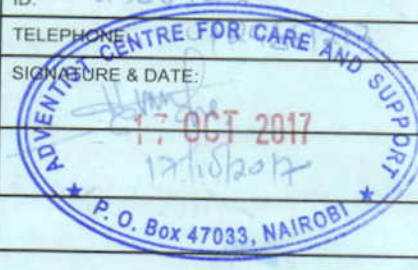 ID:
TELEPHONE
SIGNATURE & DATE:
ADVENTIST CENTRE FOR CARE AND SUPPORT
17 OCT 2017
17/10/2017
★ P. O. Box 47033, NAIROBI ★